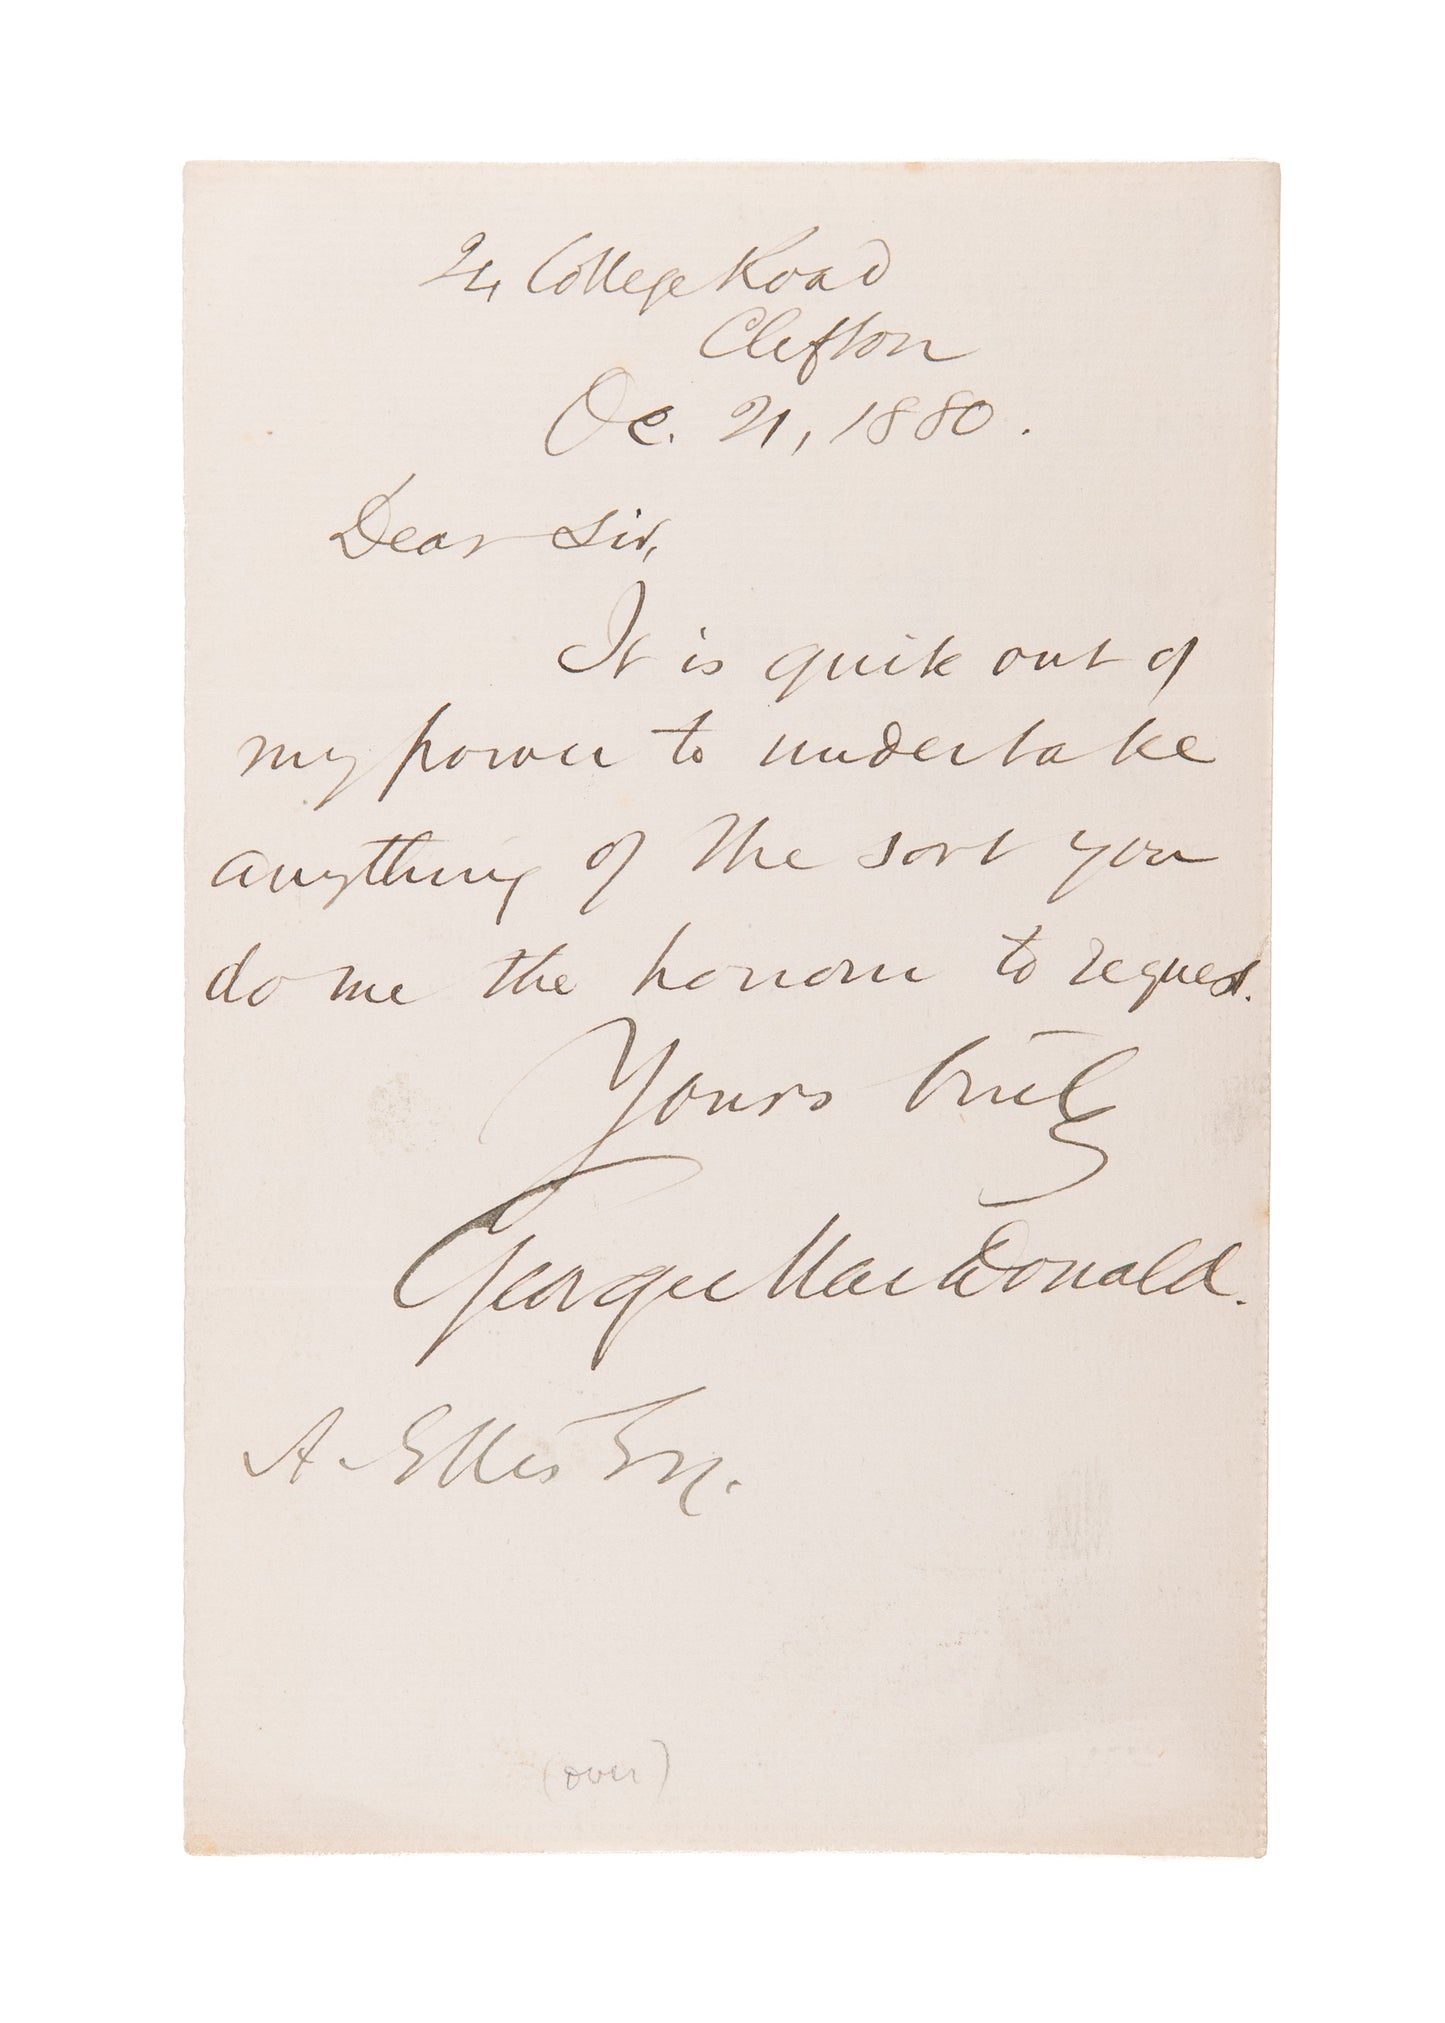 24 College Road
Clifton
Oc. 21, 1880.
Dear Sir,
It is quite out of
my power to undertake
anything of the sort you
do me the honour to request.
Yours truly
George MacDonald.
A. Ellis Esq.
(over)